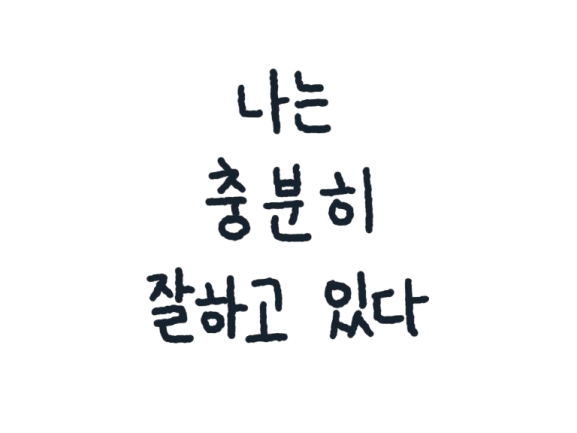 나는
충분히
잘하고 있다